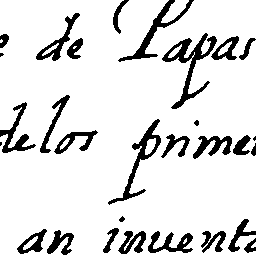 e de Papas
delos primer
an inventa